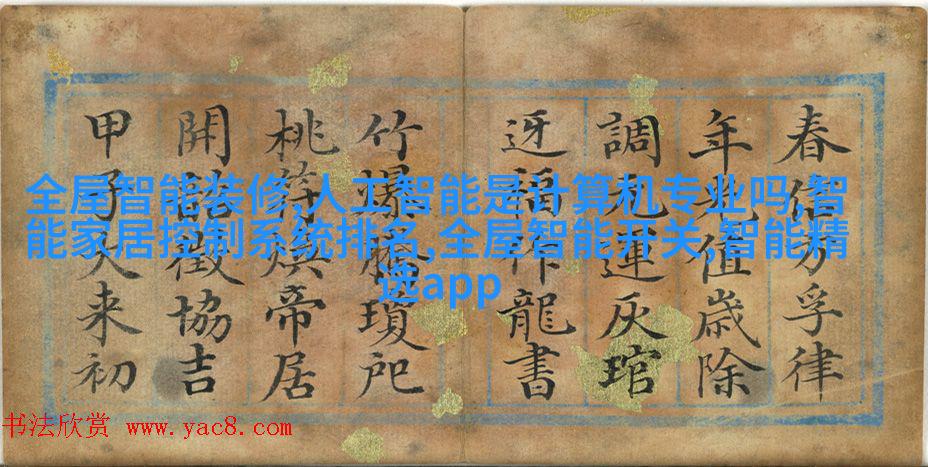 春信方孚律
年光值歲除
調元運灰琯
迓福作龍書
竹爆騰瓊
桃符煥帝居
開徵協吉
甲子来初
全屋智能装修,人工智能是计算机专业吗,智
能家居控制系统排名,全屋智能开关,智能精
选app
书法欣赏 www.yac8.com